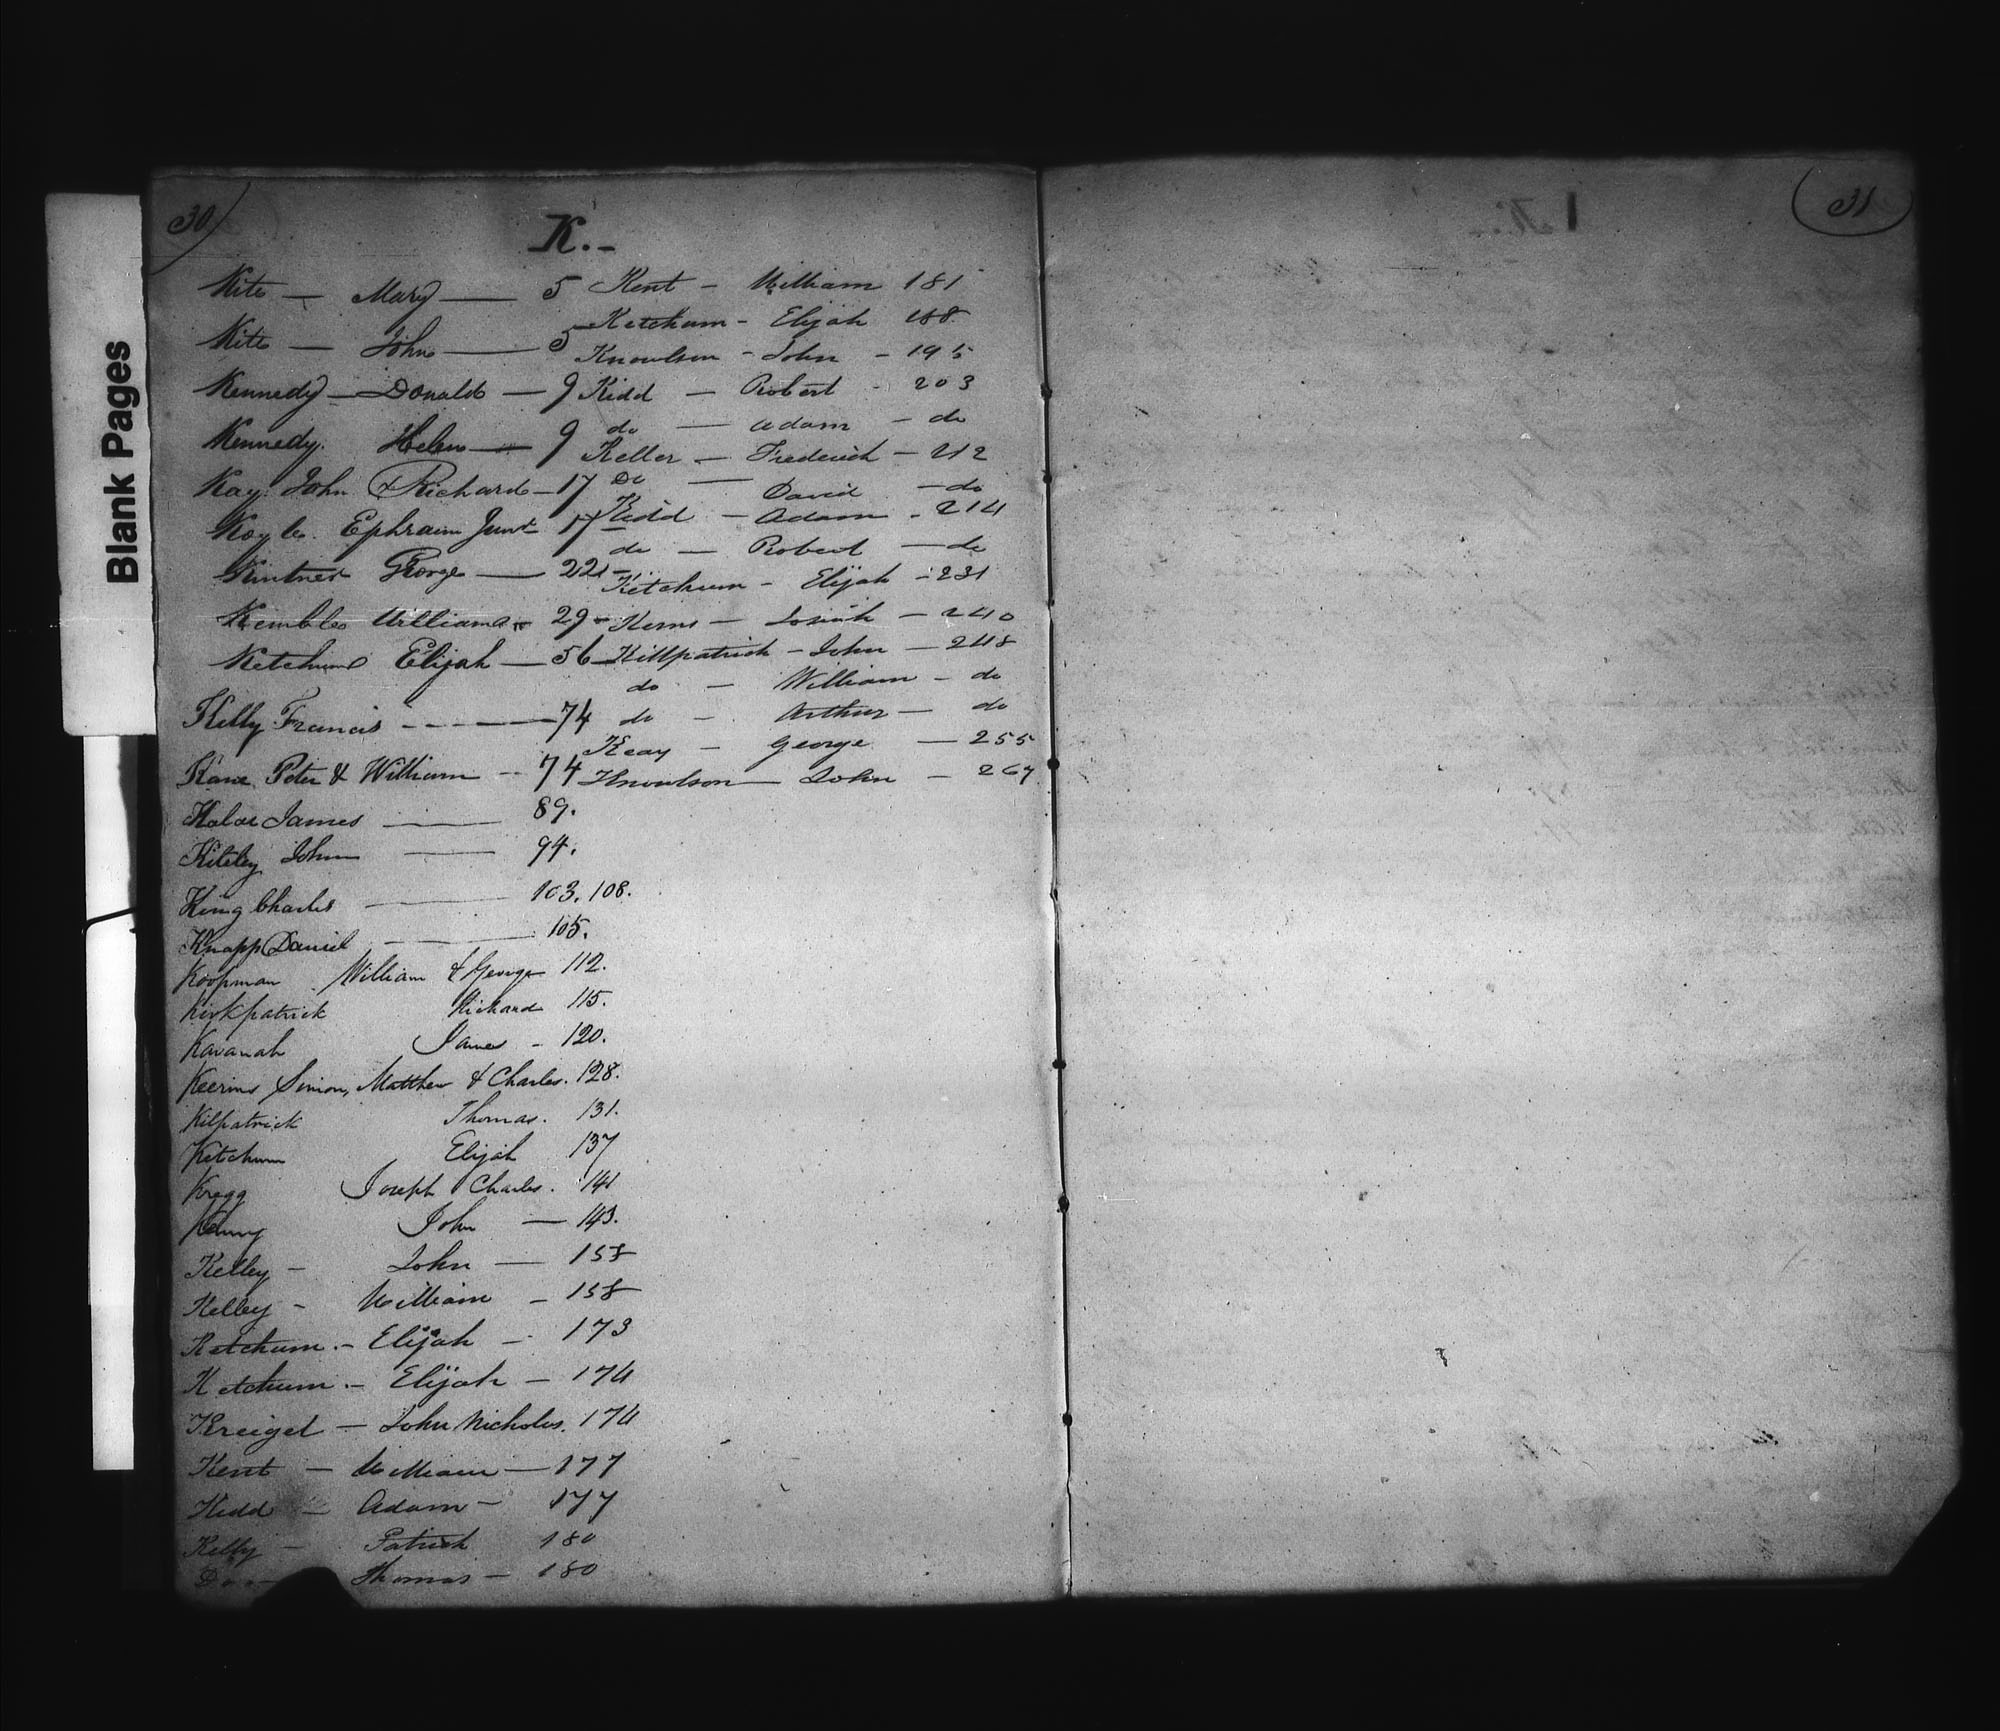 Blank Pages
30
K.-
Kite — Mary — 5
Kite — John — 5
Kennedy — Donald — 9
Kennedy. Helen — 9
Kay. John & Richard — 17
Koyle. Ephraim Junr 17
Kintner George — 22
Kemble William — 29
Ketchum Elijah — 56
Kelly Francis - - - — 74
Kane Peter & William - - 74
James — 89.
Kiteley John — 94.
King Charles — 103. 108.
Knapp Daniel — 105.
Koopman William & George 112.
Kirkpatrick Richard 115.
Kavanah James - 120.
Keerins Simon, Matthew & Charles. 128.
Kilpatrick Thomas. 131.
Kitchum Elijah 137
Kregg Joseph Charles. 141
John — 143.
Kelley - John — 158
Kelley - William - 158
Ketchum. - Elijah - 173
Ketchum - Elijah - 174
Kreiget - John Nicholas. 174
Kent - William - 177
Kidd - Adam - 177
Kelly - Patrick 180
Do - Thomas - 180
Kent - William 181
Ketchum - Elijah 188.
Knowlson - John - 195
Kidd - Robert - 203
do — Adam - do
Keller - Frederick - 212
Do — David - do
Kidd - Adam - 214
do — Robert — do
Ketchum - Elijah - 231
Kerns - Josiah - 240
Killpatrick - John - 248
do - William - do
do - Arthur - do
Keay - George — 255
Knowlson - John - 267
31